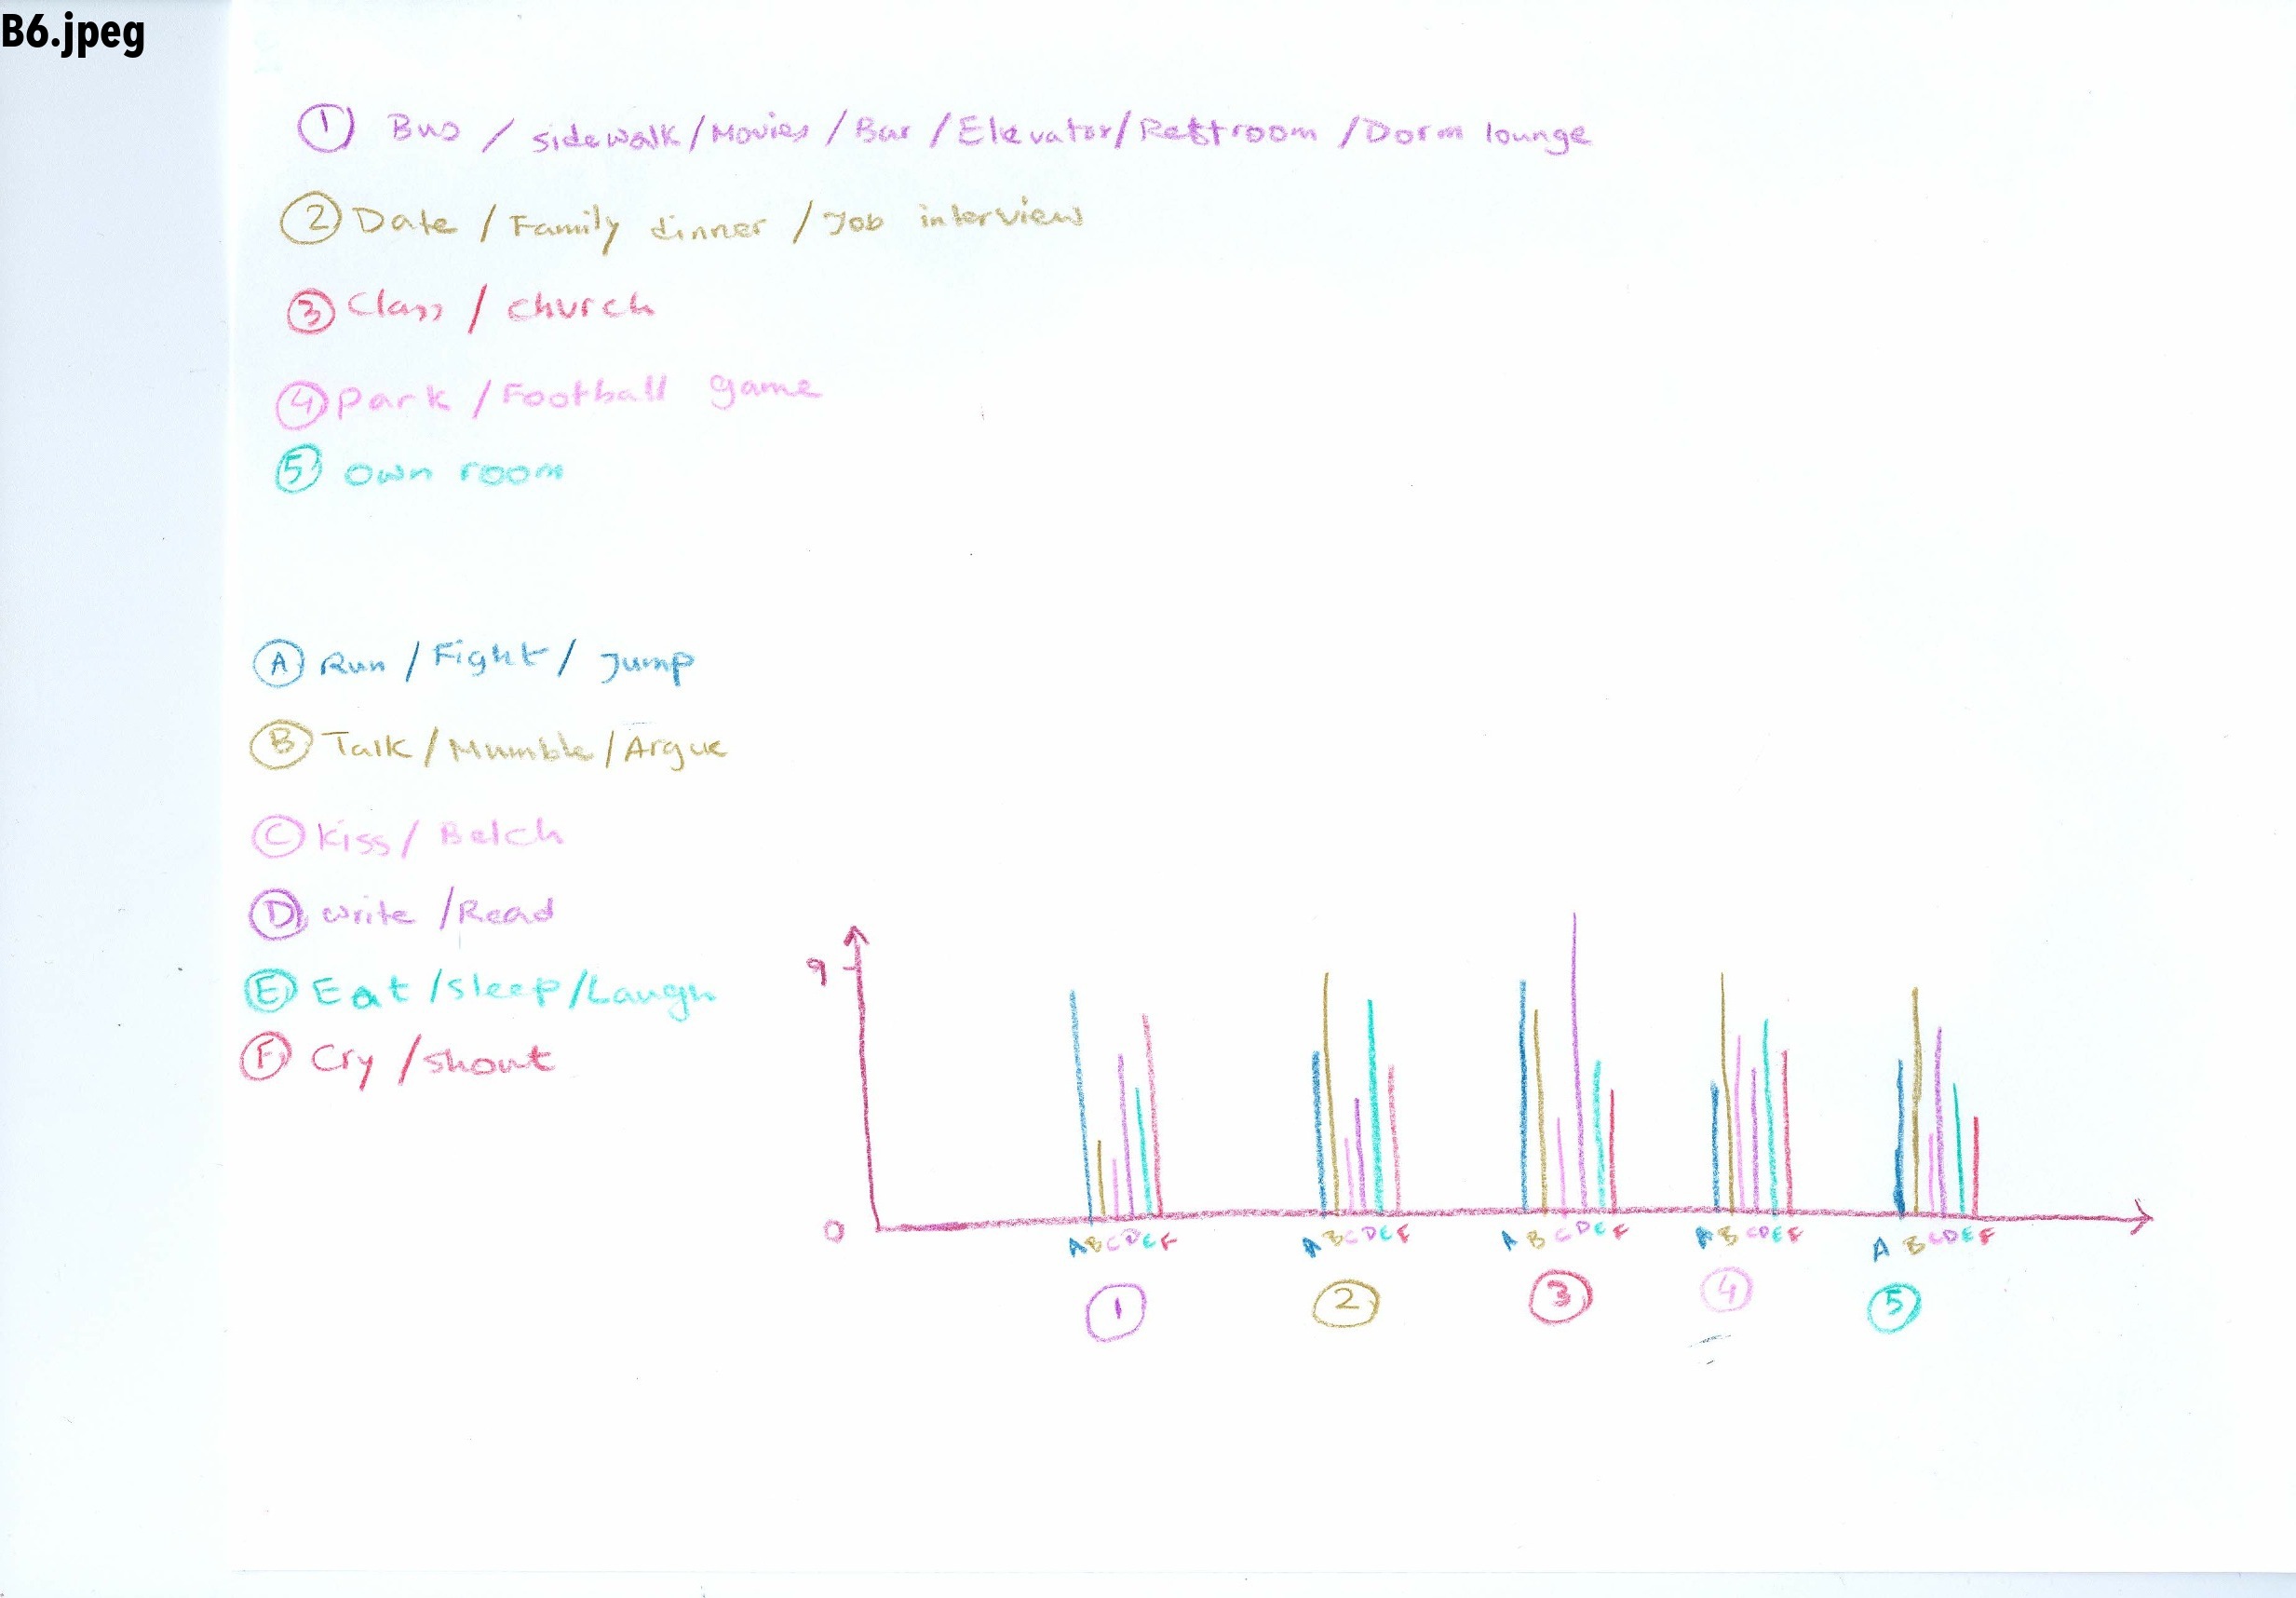 B6.jpeg
① Bus / sidewalk / Movies / Bar / Elevator / Restroom / Dorm lounge
② Date / Family dinner / Job interview
③ Class / church
④ Park / Football game
⑤ Own room
Ⓐ Run / Fight / Jump
Ⓑ Talk / Mumble / Argue
Ⓒ Kiss / Belch
Ⓓ write / Read
Ⓔ Eat / sleep / Laugh
Ⓕ Cry / shout
9
0
A B C D E F A B C D E F A B C D E F A B C D E F A B C D E F
① ② ③ ④ ⑤